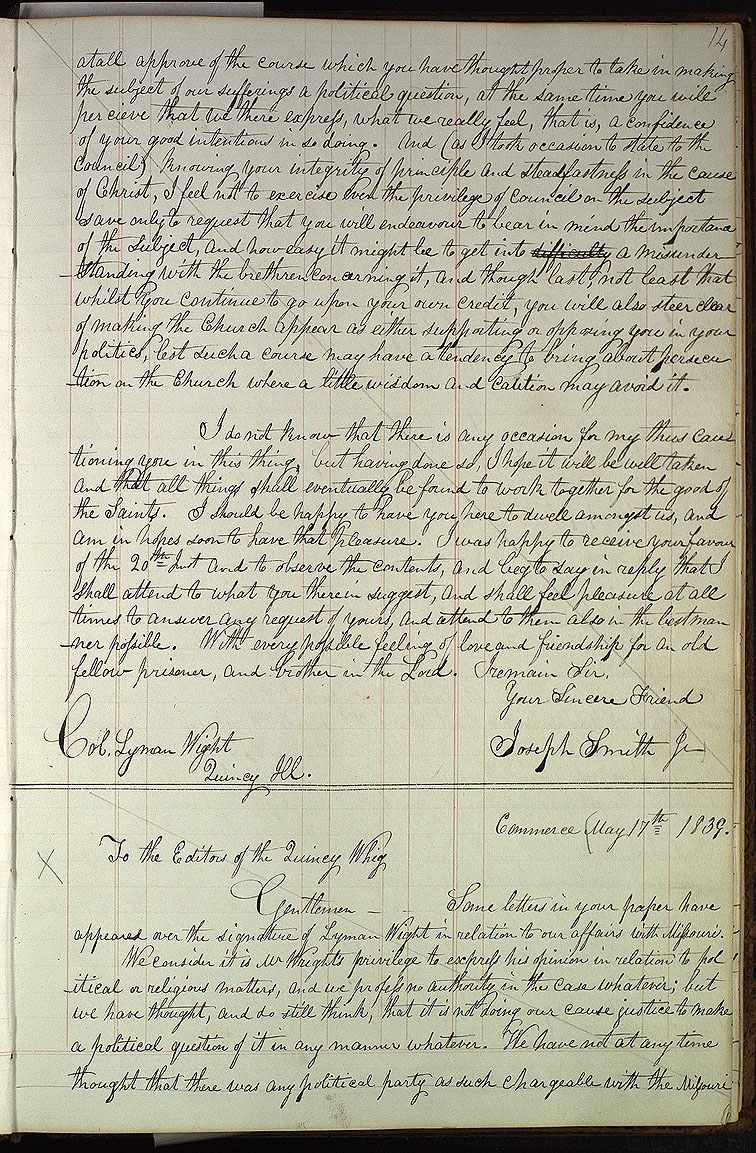 14
atall approve of the course which you have thought proper to take in making
the subject of our sufferings a political question, at the same time you will
percieve that we there express, what we really feel, that is, a confidence
of your good intentions in so doing. And (as I took occasion to state to the
Council) knowing your integrity of principle and steadfastness in the cause
of Christ, I feel not to exercise even the privilege of council on the subject
save only to request that you will endeavour to bear in mind the importance
of the subject, and how easy it might be to get into difficulty a misunder-
-standing with the brethren concerning it, and though last, not least that
whilst you continue to go upon your own credit, you will also steer clear
of making the Church appear as either supporting or opposing you in your
politics, lest such a course may have a tendency to bring about persecu
-tion on the Church where a little wisdom and caution may avoid it.
I do not know that there is any occasion for my thus cau
tioning you in this thing, but having done so, I hope it will be well taken
and that all things shall eventually be found to work together for the good of
the Saints. I should be happy to have you here to dwell amongst us, and
am in hopes soon to have that pleasure. I was happy to receive your favour
of the 20th Inst and to observe the contents, and beg to say in reply that I
shall attend to what you therein suggest, and shall feel pleasure at all
times to answer any request of yours, and attend to them also in the best man
-ner possible. With every possible feeling of love and friendship for an old
fellow prisoner, and brother in the Lord. I remain Sir,
Your Sincere Friend
Col. Lyman Wight Joseph Smith Jr
Quincy Ill.
Commerce May 17th 1839.
X To the Editors of the Quincy Whig
Gentlemen — Some letters in your paper have
appeared over the signature of Lyman Wight in relation to our affairs with Missouri.
We consider it is Mr Wrights privilege to express his opinion in relation to pol
-itical or religious matters, and we profess no authority in the case whatever; but
we have thought, and do still think, that it is not doing our cause justice to make
a political question of it in any manner whatever. We have not at any time
thought that there was any political party as such chargeable with the Missouri